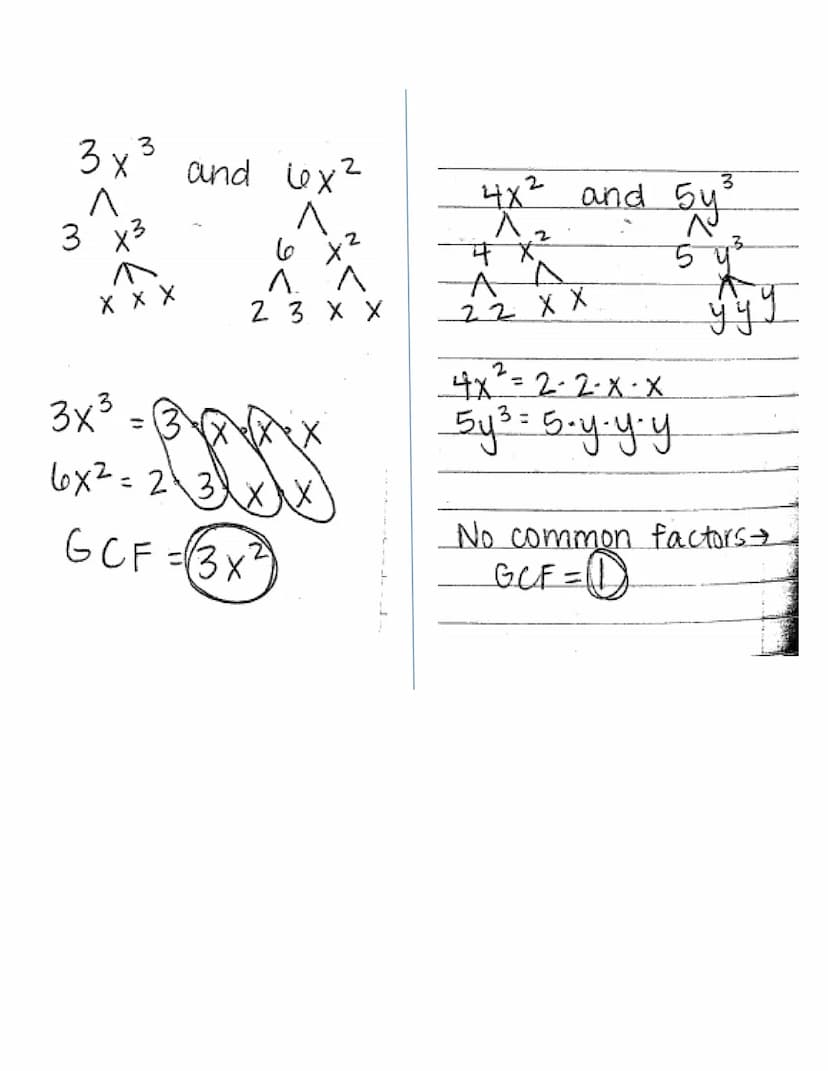 3x³ and 6x²
3 x³ 6 x²
x x x 2 3 x x
3x³ = 3·x·x·x
6x² = 2·3·x·x
GCF = 3x²
4x² and 5y³
4 x² 5 y³
2 2 x x y y y
4x² = 2·2·x·x
5y³ = 5·y·y·y
No common factors→
GCF = 1